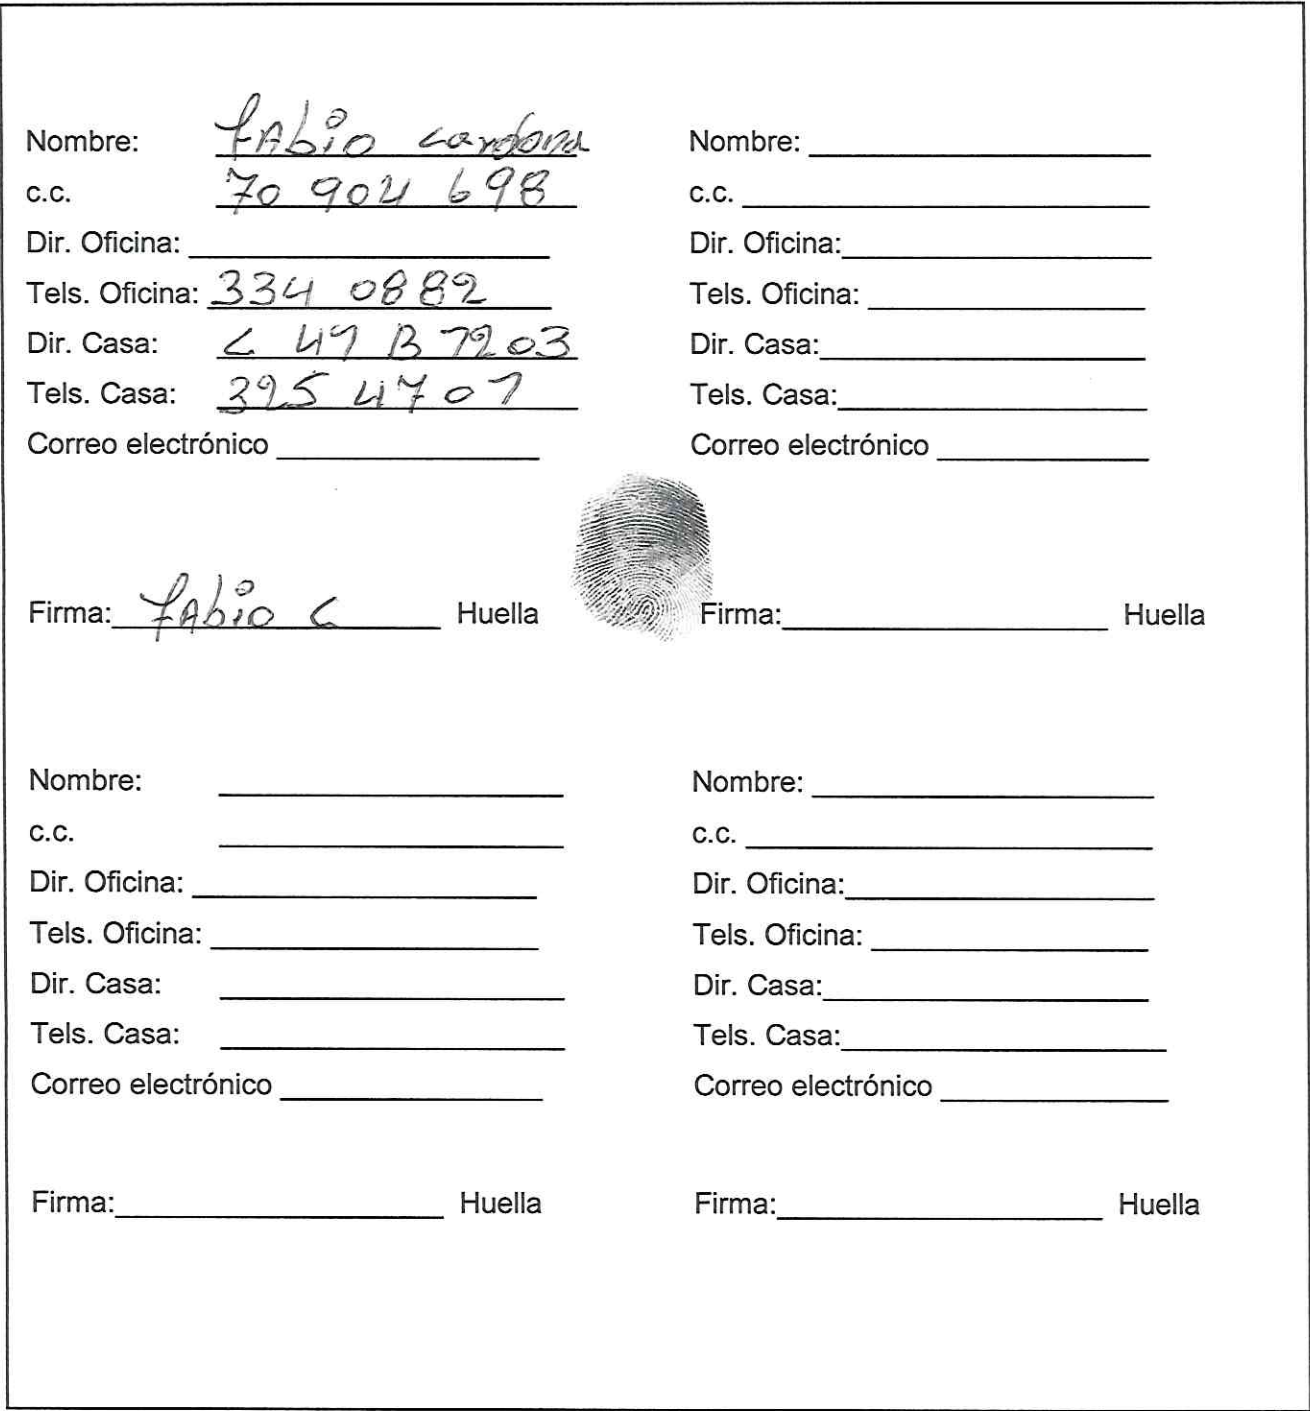 Nombre: Fabio Cardona
c.c. 70 904 698
Dir. Oficina:
Tels. Oficina: 334 0882
Dir. Casa: C 49 B 7203
Tels. Casa: 325 4701
Correo electrónico
Firma: Fabio C Huella
Nombre:
c.c.
Dir. Oficina:
Tels. Oficina:
Dir. Casa:
Tels. Casa:
Correo electrónico
Firma: Huella
Nombre:
c.c.
Dir. Oficina:
Tels. Oficina:
Dir. Casa:
Tels. Casa:
Correo electrónico
Firma: Huella
Nombre:
c.c.
Dir. Oficina:
Tels. Oficina:
Dir. Casa:
Tels. Casa:
Correo electrónico
Firma: Huella